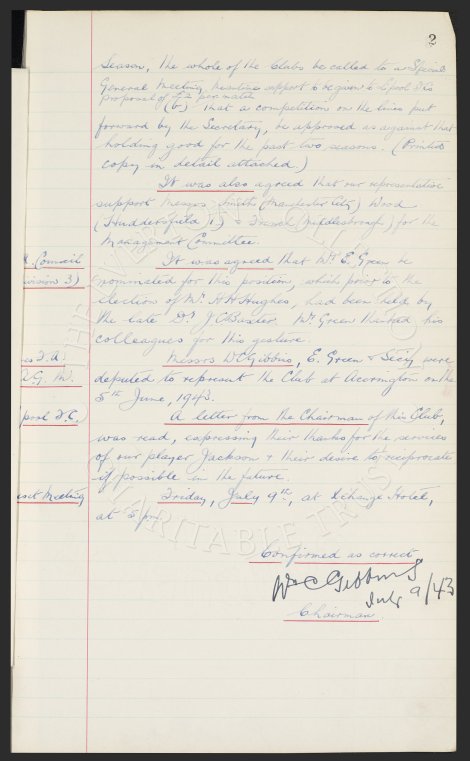 2
Season, the whole of the Clubs be called to a Special
General Meeting, meantime support to be given to L'pool F.C's
proposal of £2 per match
(b) That a competition on the lines put
forward by the Secretary, be approved as against that
holding good for the past two seasons. (Printed
copy in detail attached)
It was also agreed that our representative
support Messrs Smith (Manchester City) Wood
(Huddersfield T.) & French (Middlesbrough) for the
Management Committee.
. Council
It was agreed that Mr E. Green be
ivision 3)
nominated for this position, which prior to the
election of Mr H H Hughes, had been held by
the late Dr J C Baxter. Mr Green thanked his
colleagues for this gesture.
Messrs W C Gibbins, E. Green & Secy were
.G. M.
deputed to represent the Club at Accrington on the
5th June, 1943.
pool F.C.
A letter from the Chairman of this Club,
was read, expressing their thanks for the services
of our player Jackson & their desire to reciprocate
if possible in the future.
ext Meeting
Friday, July 9th, at Exchange Hotel,
at 5 pm.
Confirmed as correct
Wm C Gibbins
July 9/43
Chairman
CHARITABLE TRUST